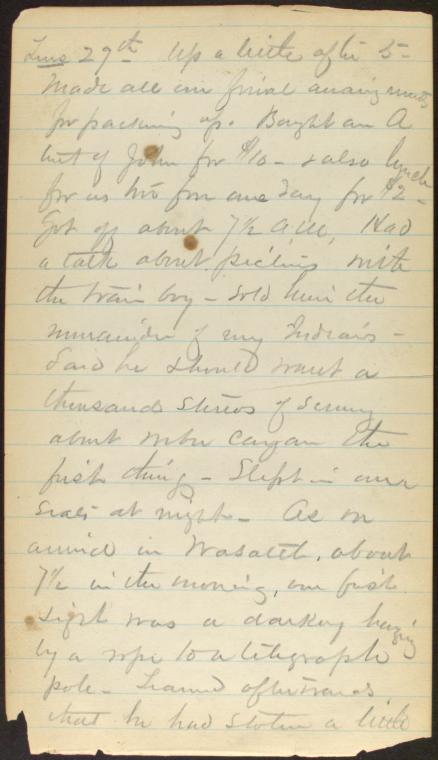 Tues 29th Up a little after 5-
Made all our final arrangments
for packing up. Bought an A
tent of John for $10 - & also lunch
for us two for one day for $2-
Got off about 7½ A.M. Had
a talk about pictures with
the train boy - sold him the
remainder of my Indians -
Said he should want a
thousand stereos of scenery
about Weber canyon the
first thing - Slept in our
seats at night - As we
arrived in Wasatch, about
7½ in the morning, our first
sight was a darkey hanging
by a rope to a telegraph
pole - Learned afterwards
that he had stolen a little